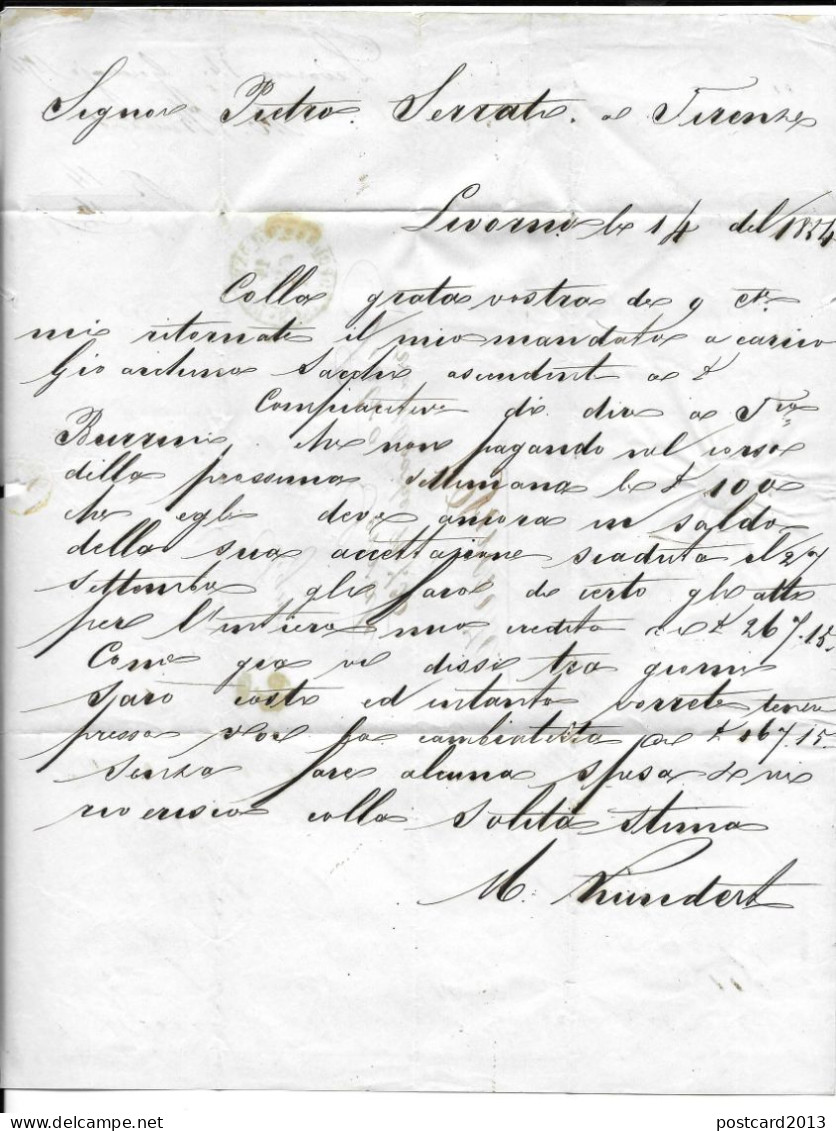 Signor Pietro Serrati a Firenze
Livorno li 14 del 1854
Colla grata vostra de 9 Cte
mi ritornate il mio mandato a carico
Gio ascendente a £
Compiacetevi di dire a
che non pagando nel corso
della prossima settimana le £ 100
che egli deve ancora in saldo
della sua accettazione scaduta il 27
Settembre gli farò di certo gli atti
per l'intiero mio credito di £ 267.15.
Come già vi dissi tra giorni
sarò costì ed intanto vorrete tenere
presso voi la di £ 267.15
senza fare alcuna spesa e vi
riverisco colla solita stima
M.
postcard2013